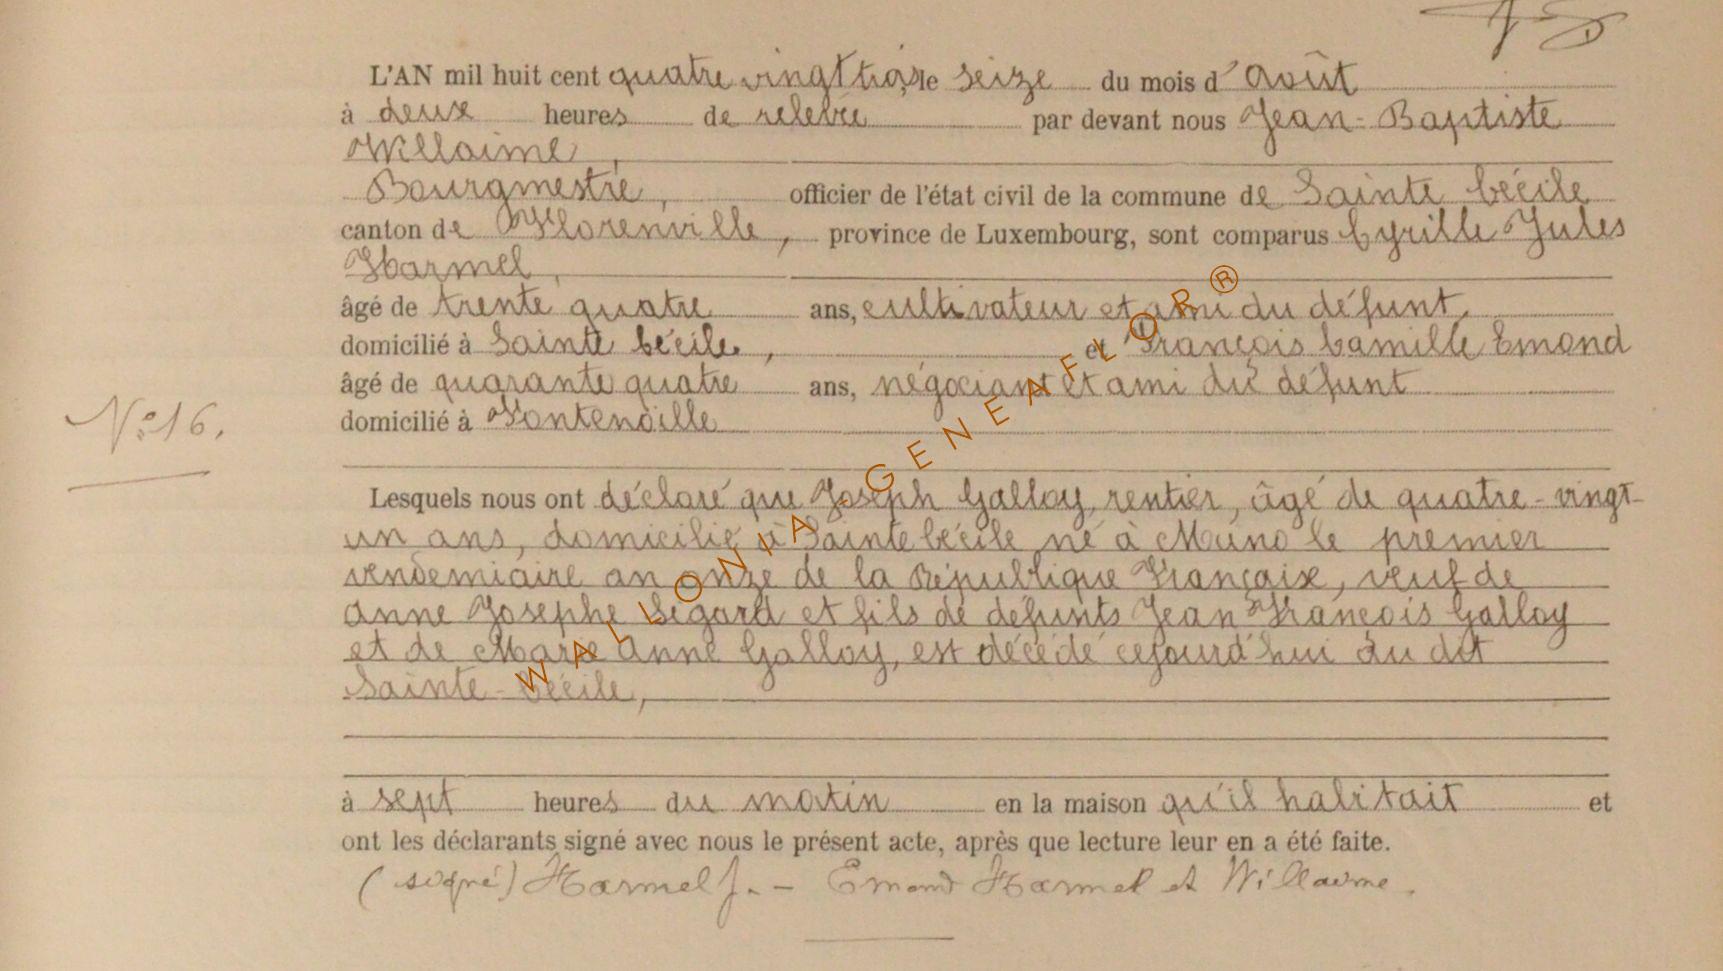 L'AN mil huit cent quatre vingt trois, le seize du mois d'Août
à deux heures de relevée par devant nous Jean-Baptiste
Willaime,
Bourgmestre, officier de l'état civil de la commune de Sainte Cécile
canton de Florenville, province de Luxembourg, sont comparus Cyrille Jules
Harmel,
âgé de trente quatre ans, cultivateur et ami du défunt,
domicilié à Sainte Cécile, et François Camille Emond
âgé de quarante quatre ans, négociant et ami du défunt
N° 16.
domicilié à Fontenoille
Lesquels nous ont déclaré que Joseph Galloy, rentier, âgé de quatre-vingt-
un ans, domicilié à Sainte Cécile né à Muno le premier
vendemiaire an onze de la République Française, veuf de
Anne Josephe Ligard et fils de défunts Jean François Galloy
et de Marie Anne Galloy, est décédé cejourd'hui au dit
Sainte-Cécile,
à sept heures du matin en la maison qu'il habitait et
ont les déclarants signé avec nous le présent acte, après que lecture leur en a été faite.
(signé) Harmel J. - Emond Harmel et Willaime.
WALLONIA-GENEAFLOR®